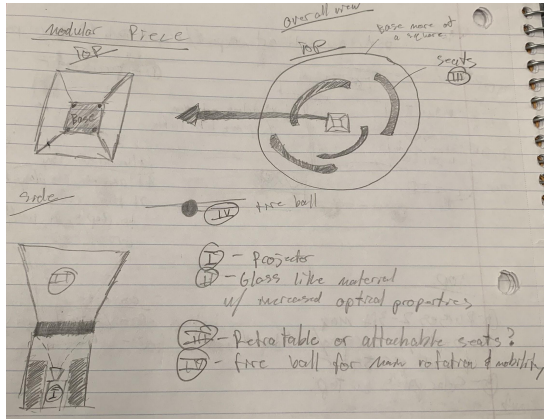 Modular Piece
Top
Base
overall view
Top
Base more of
a square
seats
III
side
IV tire ball
II
I
I - Projector
II - Glass like material
w/ increased optical properties
III - Retratable or attachable seats?
IV - tire ball for rotation & mobility